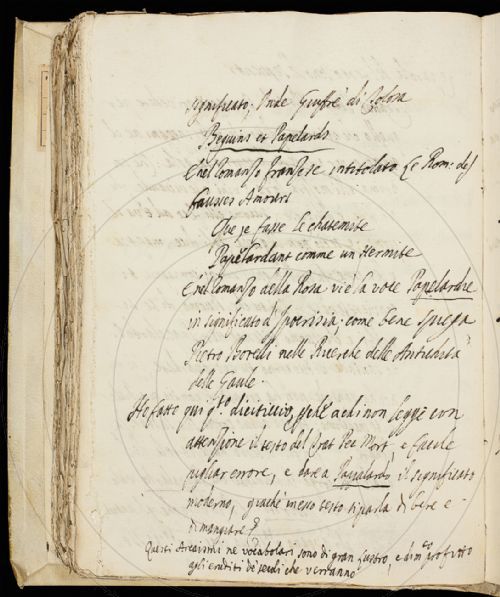 significato; Onde Giuffrè di Tolosa
Beguins et Papelards
E nel Romanzo franzese intitolato Le Rom: des
fausses Amours
Que je fasse le chatemite
Papelardant comme un Hermite
E nel Romanzo della Rosa vi è la voce Papelardie
in significato d'Ipocrisia; come bene spiega
Pietro Borelli nelle Ricerche delle Antichità
delle Gaule.
Ho fatto qui q.to perchè chi non legge con
attenzione il testo del è facile
pigliar errore, e dare a Pappalardo il significato
moderno, in esso testo si parla di bere e
di mangiare
Questi Arcaismi ne vocabolari sono di gran lustro, e di profitto
agli eruditi di secoli che verranno